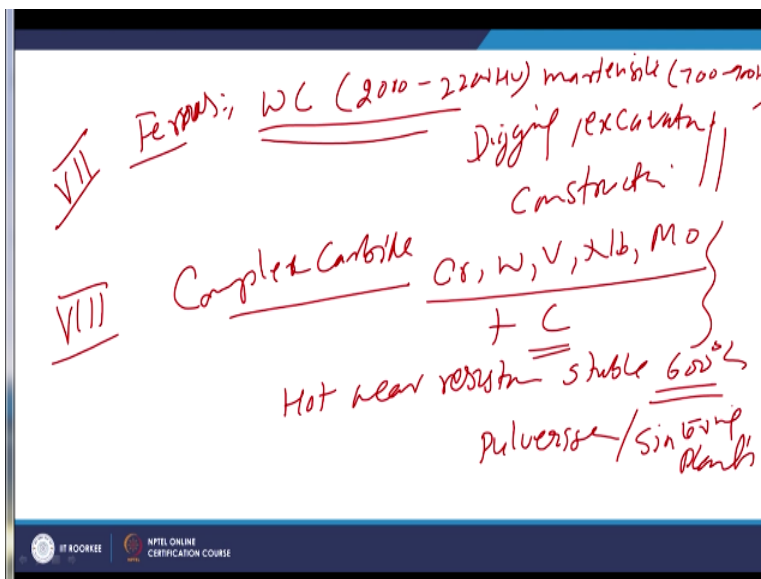 VII Ferrous:, WC (2000-2200HV) martensite (700-900H
Digging, excavator,
Construction
VIII Complex Carbide Cr, W, V, Nb, Mo
+ C
Hot wear resistan stable 600°C
Pulveriser/Sintering
Plants
IIT ROORKEE
NPTEL ONLINE
CERTIFICATION COURSE